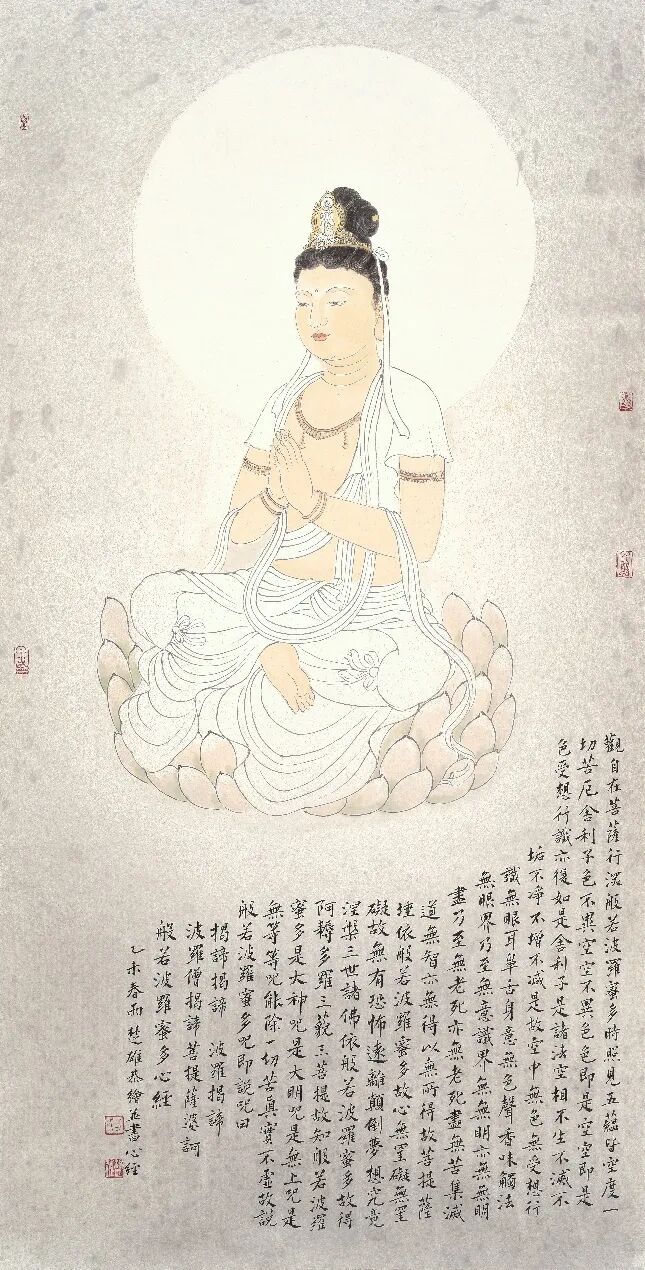 觀自在菩薩行深般若波羅蜜多時照見五蘊皆空度一
切苦厄舍利子色不異空空不異色色即是空空即是
色受想行識亦復如是舍利子是諸法空相不生不滅不
垢不淨不增不減是故空中無色無受想行
識無眼耳鼻舌身意無色聲香味觸法
無眼界乃至無意識界無無明亦無無明
盡乃至無老死亦無老死盡無苦集滅
道無智亦無得以無所得故菩提薩
埵依般若波羅蜜多故心無罣礙無罣
礙故無有恐怖遠離顛倒夢想究竟
涅槃三世諸佛依般若波羅蜜多故得
阿耨多羅三藐三菩提故知般若波羅
蜜多是大神咒是大明咒是無上咒是
無等等咒能除一切苦真實不虛故說
般若波羅蜜多咒即說咒曰
揭諦揭諦 波羅揭諦
波羅僧揭諦 菩提薩婆訶
般若波羅蜜多心經
乙未春雨楚雄恭繪並書心經